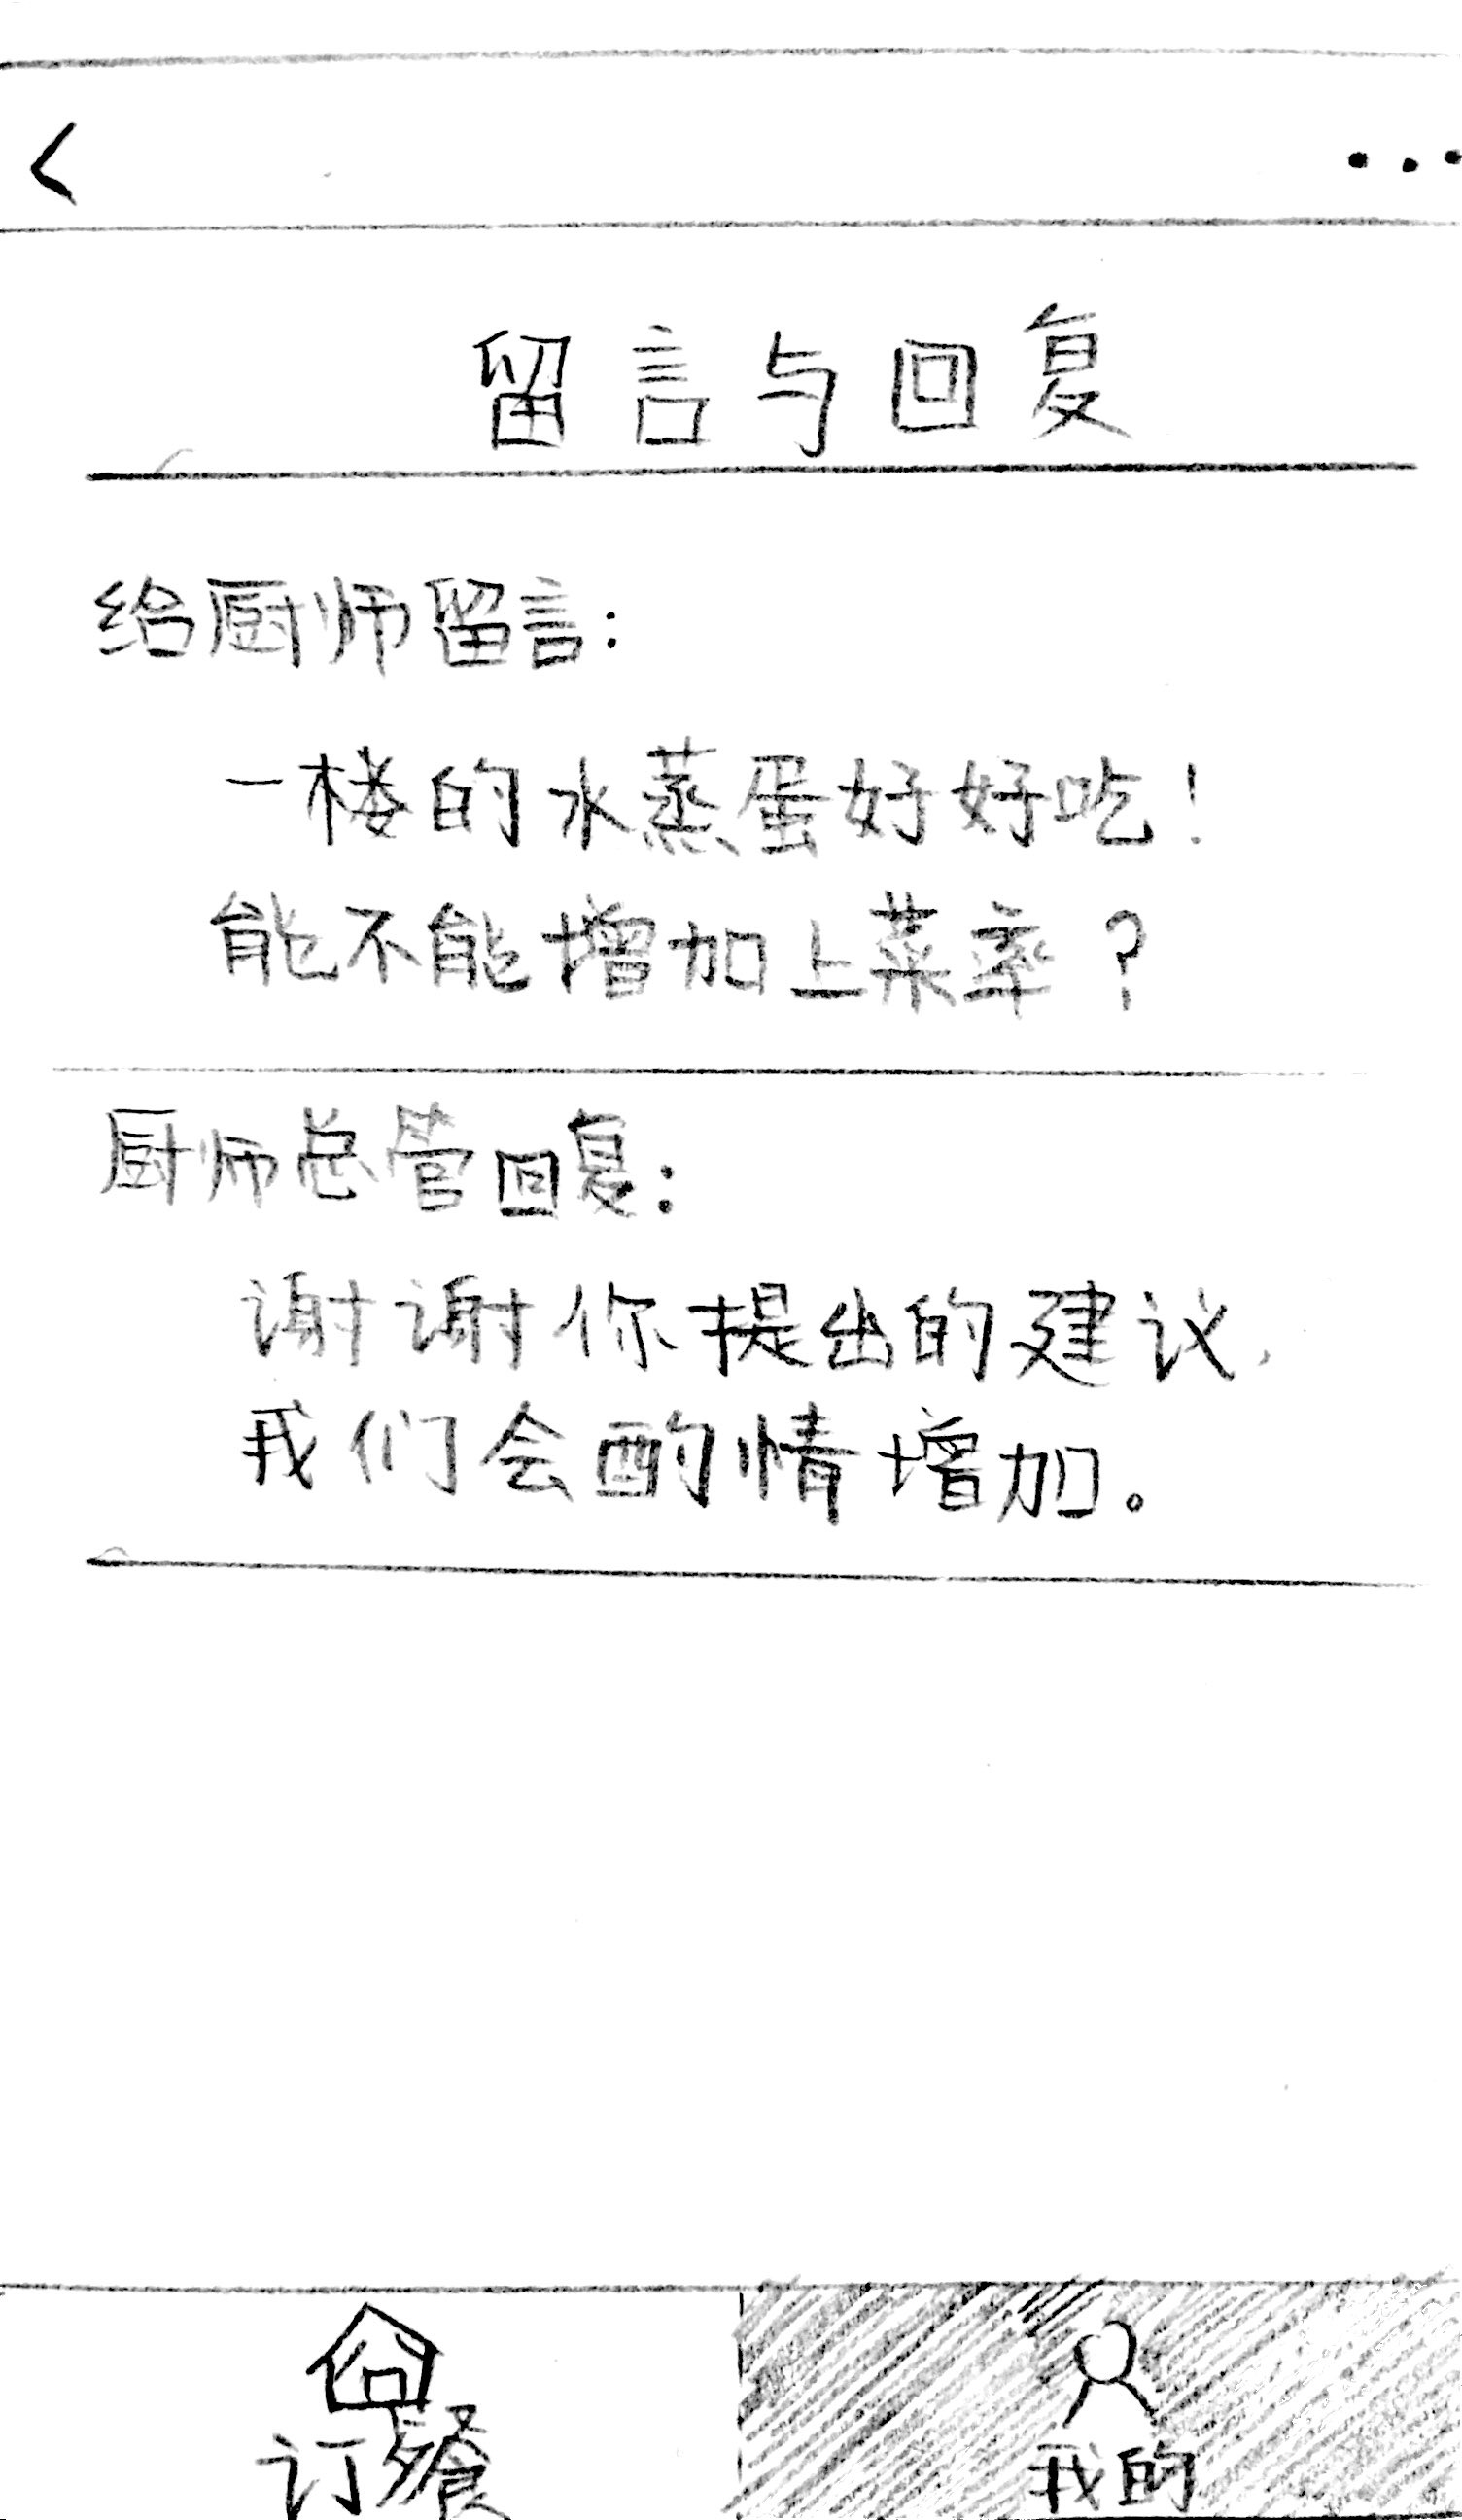 留言与回复
给厨师留言：
一楼的水蒸蛋好好吃！
能不能增加上菜率？
厨师总管回复：
谢谢你提出的建议，
我们会酌情增加。
订餐
我的